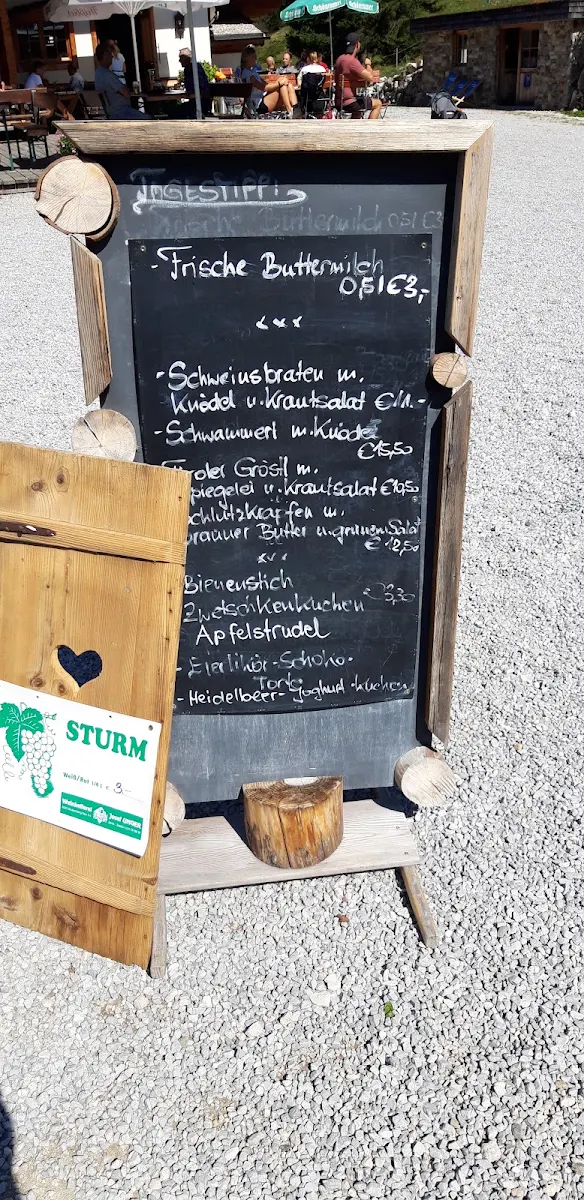 TAGESTIPP!
Frische Buttermilch 0,5l €3
- Frische Buttermilch
0,5l €3,-
- Schweinsbraten m.
Knödel u. Krautsalat €11.-
- Schwammerl m. Knödel
€15,50
Tiroler Gröstl m.
Spiegelei u. Krautsalat €10,50
Schlutzkrapfen m.
brauner Butter u. grünem Salat
€ 12,50
Bienenstich
Zwetschkenkuchen €3,30
Apfelstrudel
- Eierlikör-Schoko-
Torte
- Heidelbeer-Joghurt-Kuchen
STURM
Weiß/Rot
3,-
Weinkellerei
Josef UNGER